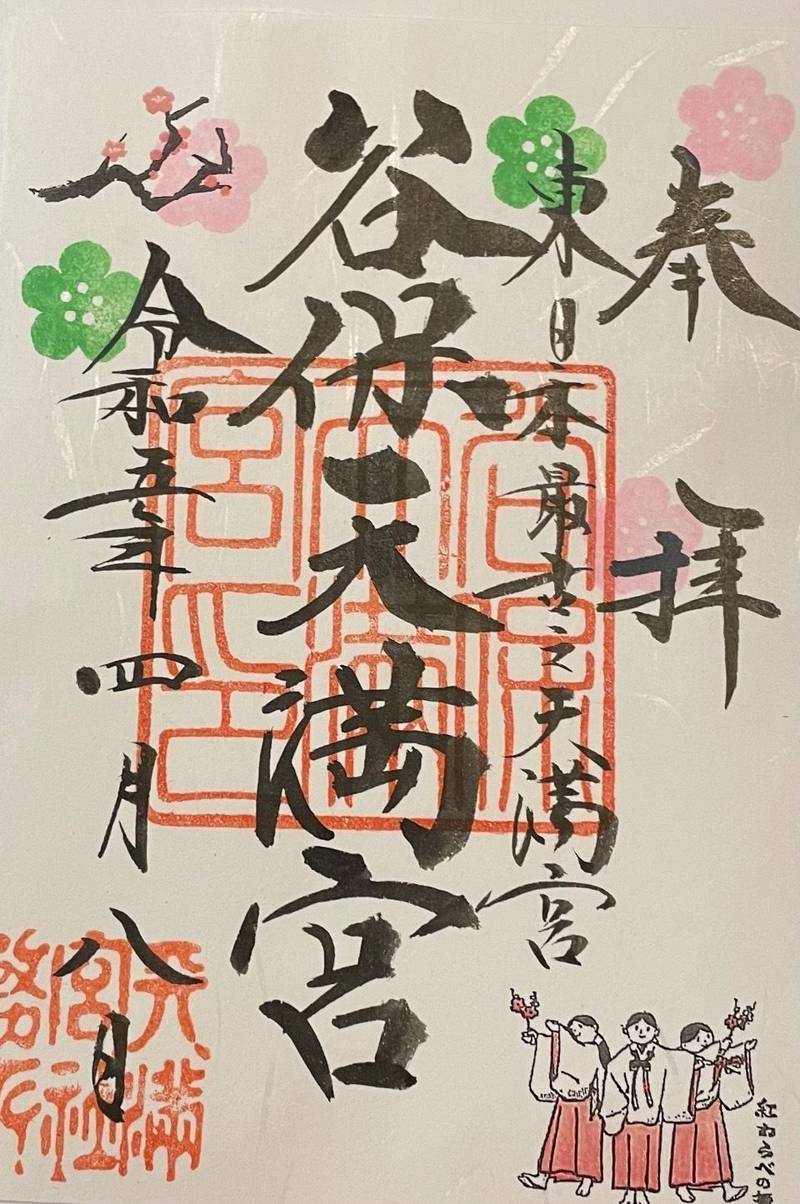 奉拝
東日本最古之天満宮
谷保天満宮
令和五年四月八日
紅わらべの
天満宮社務所